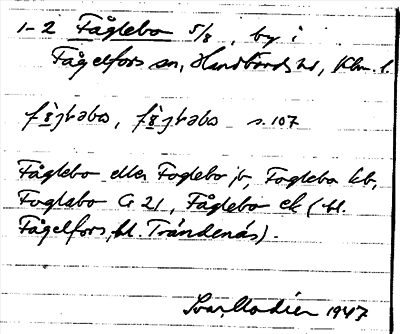 1-2 Fåglebo 5/8, by i
Fågelfors sn, Handbörds hd, Klm. l.
fò̤glεbo, fò̤gləbo s. 107
Fåglebo eller Foglebo jb, Foglebo kb,
Foglabo G 21, Fåglebo ek (bl.
Fågelfors, bl. Trändenäs).
Ivar Modéer 1947